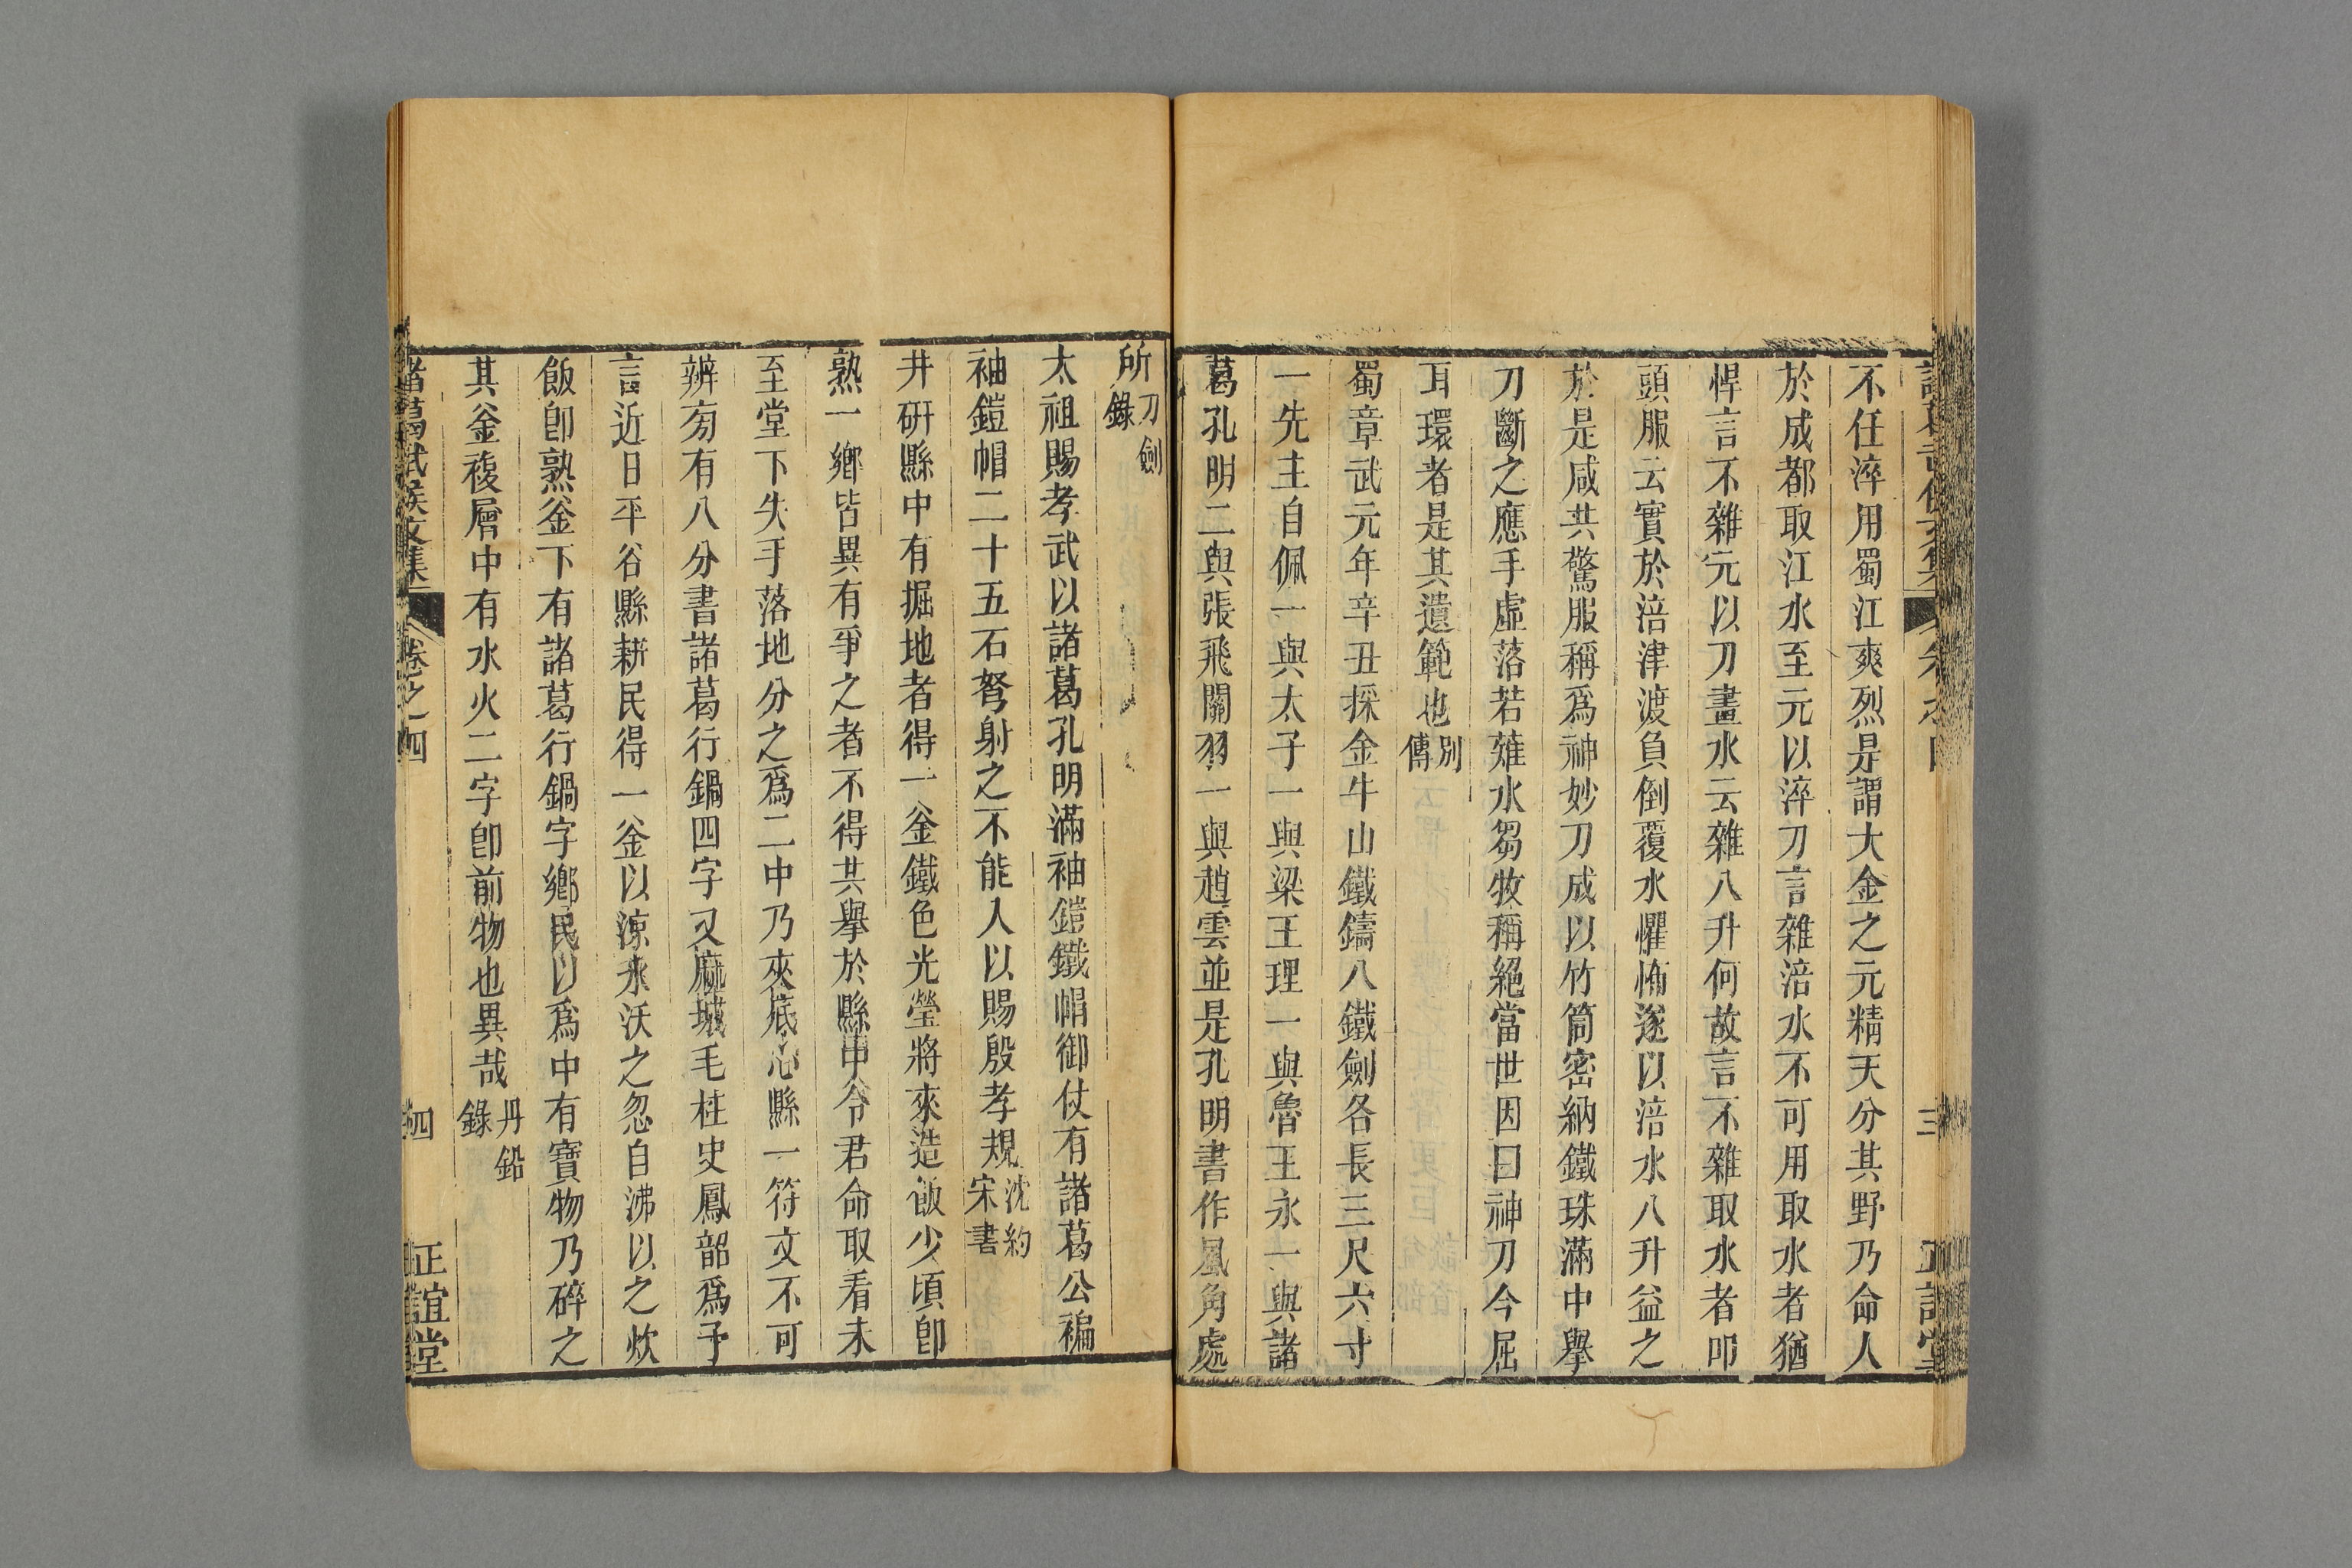 不任淬用蜀江爽烈是謂大金之元精天分其野乃命人
於成都取江水至元以淬刀言雜涪水不可用取水者猶
悍言不雜元以刀畫水云雜八升何故言不雜取水者叩
頭服云實於涪津渡負倒覆水懼怖遂以涪水八升益之
於是咸共驚服稱爲神妙刀成以竹筒密納鐵珠滿中舉
刀斷之應手虛落若薙水芻牧稱絕當世因曰神刀今屈
耳環者是其遺範也別傳
蜀章武元年辛丑採金牛山鐵鑄八鐵劍各長三尺六寸
一先主自佩一與太子一與梁王理一與魯王永一與諸
葛孔明二與張飛關羽一與趙雲並是孔明書作風角處
所刀劍錄
太祖賜孝武以諸葛孔明滿袖鎧鐵帽御仗有諸葛公褊
袖鎧帽二十五石弩射之不能入以賜殷孝規沈約宋書
井研縣中有掘地者得一釜鐵色光瑩將來造飯少頃卽
熟一鄉皆異有爭之者不得共舉於縣中令君命取看未
至堂下失手落地分之爲二中乃夾底心縣一符文不可
辨旁有八分書諸葛行鍋四字又麻城毛柱史鳳韶爲予
言近日平谷縣耕民得一釜以涼水沃之忽自沸以之炊
飯卽熟釜下有諸葛行鍋字鄉民以爲中有寶物乃碎之
其釜複層中有水火二字卽前物也異哉丹鉛錄
諸葛武侯文集 卷之四 四 正誼堂